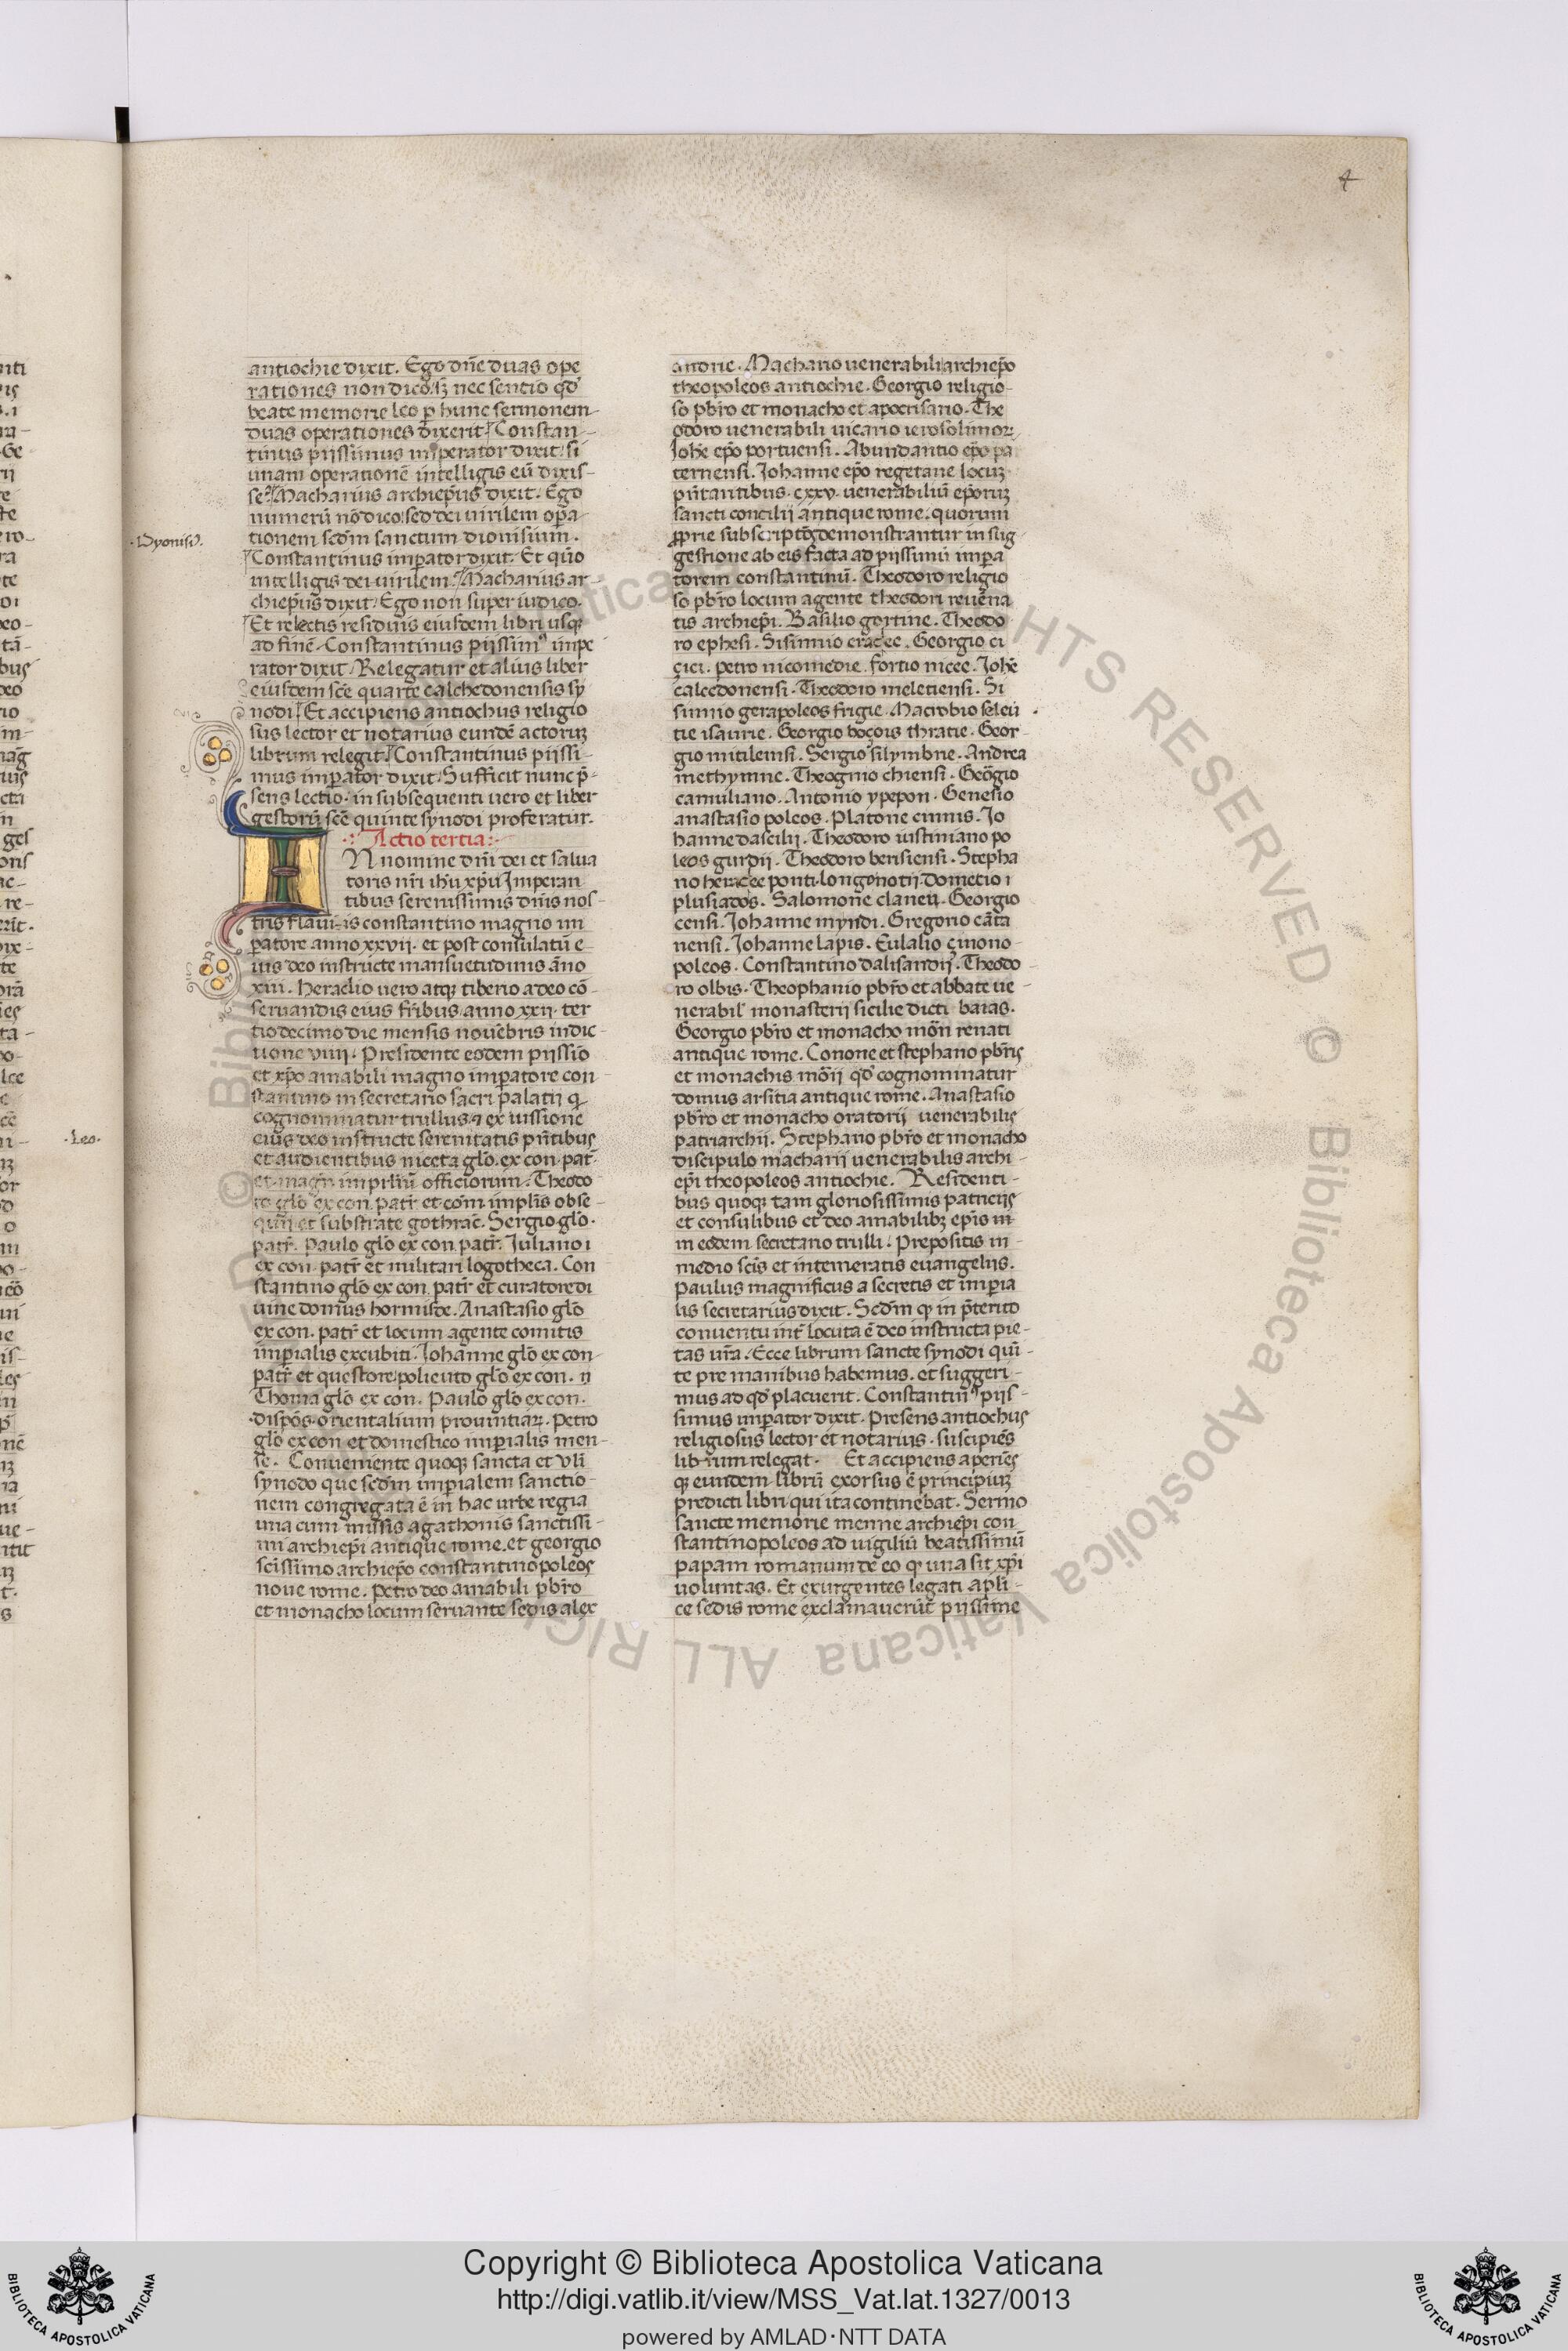 4
antiochie dixit. Ego dñe duas ope
rationes non dico. sꝫ nec sentio qđ
beate memorie leo ꝑ hunc sermonem
duas operationes dixerit. Constan-
tinus piissimus imperator dixit. si
unam operationē intelligis eū dixis-
se. Macharius archiep̃us dixit. Ego
numerū nō dico: sed dei uirilem oꝑa-
tionem scđm sanctum dionisium.
·Dyonisi9.
Constantinus imꝑator dixit. Et quō
intelligis dei uirilem. Macharius ar-
chiep̃us dixit. Ego non super iudico.
Et relectis residuis eiusdem libri usqꝫ
ad finē. Constantinus piissimꝰ impe
rator dixit. Relegatur et alius liber
eiusdem scē quarte calchedonensis sy
nodi. Et accipiens antiochus religio
sus lector et notarius eundē actoruꝫ
librum relegit. Constantinus piissi-
mus imꝑator dixit. Sufficit nunc p̃-
sens lectio. in subsequenti uero et liber
gestorū scē quinte synodi proferatur.
Actio tertia:
IN nomine dñi dei et salua
toris nr̃i ihũ xp̃i Imperan
tibus serenissimis dñis nos-
tris flauiis constantino magno im
ꝑatore anno xxvii. et post consulatū e
ius deo instructe mansuetudinis āno
xiii. heraclio uero atqꝫ tiberio a deo cō-
seruandis eius fr̃ibus anno xxii. ter
tiodecimo die mensis nouēbris indic-
tione viiii. Presidente eodem piissiō
et xp̃o amabili magno imꝑatore con
stantino in secretario sacri palatii q̃
cognominatur trullus. ⁊ ex iussione
eius deo instructe serenitatis p̃ntibus
·Leo·
et audientibus niceta glō. ex con. patr̃.
et magr̃ imprliū officiorum. Theodo
ro glō ex con. patr̃ et com̃. imp̃lis obse-
quii et substrate gothrac̃. Sergio glō.
patr̃. Paulo glō ex con. patr̃. Iuliano ⁊
ex con. patr̃ et militari logotheca. Con
stantino glō ex con. patr̃ et curatore di
uine domus hormisde. Anastasio glō
ex con. patr̃ et locum agente comitis
imꝑialis excubiti. Iohanne glō ex con
patr̃ et questore. polieuto glō ex con. ⁊
Thoma glō ex con. Paulo glō ex con.
dispōs. orientalium prouintiaꝝ. Petro
glō ex con et domestico imꝑialis men-
se. Conueniente quoqꝫ sancta et vl̃i
synodo que scđm imꝑialem sanctio-
nem congregata ē in hac urbe regia
una cum missis agathonis sanctissi-
mi archiep̃i antique rome. et georgio
scissimo archiep̃o constantinopoleos
noue rome. Petro deo amabili pb̃ro
et monacho locum seruante sedis alex
andrie. Machario uenerabili archiep̃o
theopoleos antiochie. Georgio religio-
so pb̃ro et monacho et apocrisario. The
odoro uenerabili uicario ierosolimoꝝ.
Iohē ep̃o portuensi. Abundantio ep̃o pa
ternensi. Iohanne ep̃o regetane locuꝫ
p̃ntantibus. cxxv. uenerabiliū ep̃oruꝫ
sancti concilii antique rome. quorum
ꝓprie subscriptōs demonstrantur in sug
gestione ab eis facta ad piissimū imꝑa
torem constantinū. Theodoro religio
so pb̃ro locum agente theodori reuēna
tis archiep̃i. Basilio gortine. Theodo
ro ephesi. Sisinnio eraclee. Georgio ci
çici. petro nicomedie. fortio nicee. Iohē
calcedonensi. Theodoro meletiensi. Si
sinnio gerapoleos frigie. Macrobio seleu
tie isaurie. Georgio boçois thratie. Geor-
gio mitilensi. Sergio silymbne. Andrea
methymne. Theognio chiensi. Geōgio
camuliano. Antonio ypepon. Genesio
anastasio poleos. Platone cinnis. Io
hanne dascilii. Theodoro iustiniano po
leos gurdii. Theodoro berisiensi. Stepha
no heraclee ponti. longino tii. Domecio ⁊
plusiados. Salomone claneu. Georgio
censi. Iohanne myndi. Gregorio cāta
nensi. Iohanne lapis. Eulalio çinono-
poleos. Constantino dalisandii. Theodo
ro olbis. Theophanio pb̃ro et abbate ue
nerabil̃ monasterii sicilie dicti baias.
Georgio pb̃ro et monacho mōii renati
antique rome. Conone et stephano pb̃ris
et monachis mōii qđ cognominatur
domus arsitia antique rome. Anastasio
pb̃ro et monacho oratorii uenerabilis
patriarchii. Stephano pb̃ro et monacho
discipulo macharii uenerabilis archi-
ep̃i theopoleos antiochie. Residenti-
bus quoqꝫ tam gloriosissimis patriciis
et consulibus et deo amabilibꝫ ep̃is in
in eodem secretario trulli. Prepositis in-
medio scīs et intemeratis euangeliis.
Paulus magnificus a secretis et imꝑia
lis secretarius dixit. Scđm q̃ in p̃terito
conuentu int̃ locuta ē deo instructa pie-
tas ur̃a. Ecce librum sancte synodi quī-
te pre manibus habemus. et suggeri-
mus ad qđ placuerit. Constantinꝰ piis-
simus imꝑator dixit. Presens antiochus
religiosus lector et notarius. suscipiēs
librum relegat. Et accipiens aperiēs
qꝫ eundem librū exorsus ē principiuꝫ
predicti libri qui ita continebat. Sermo
sancte memorie menne archiep̃i con
stantinopoleos ad uigiliū beatissimū
papam romanum de eo q̃ una sit xp̃i
uoluntas. Et exurgentes legati apl̃i-
ce sedis rome exclamauerūt piissime
Copyright © Biblioteca Apostolica Vaticana
http://digi.vatlib.it/view/MSS_Vat.lat.1327/0013
powered by AMLAD·NTT DATA